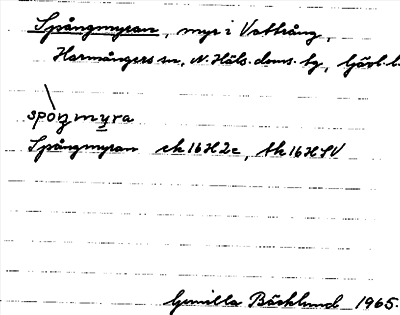 Spångmyran, myr i Vattrång,
Harmångers sn, N. Häls. doms. tg, Gävl. l.
spòŋmyra
Spångmyran ek 16H2c, tk 16H SV
Gunilla Bäcklund 1965.